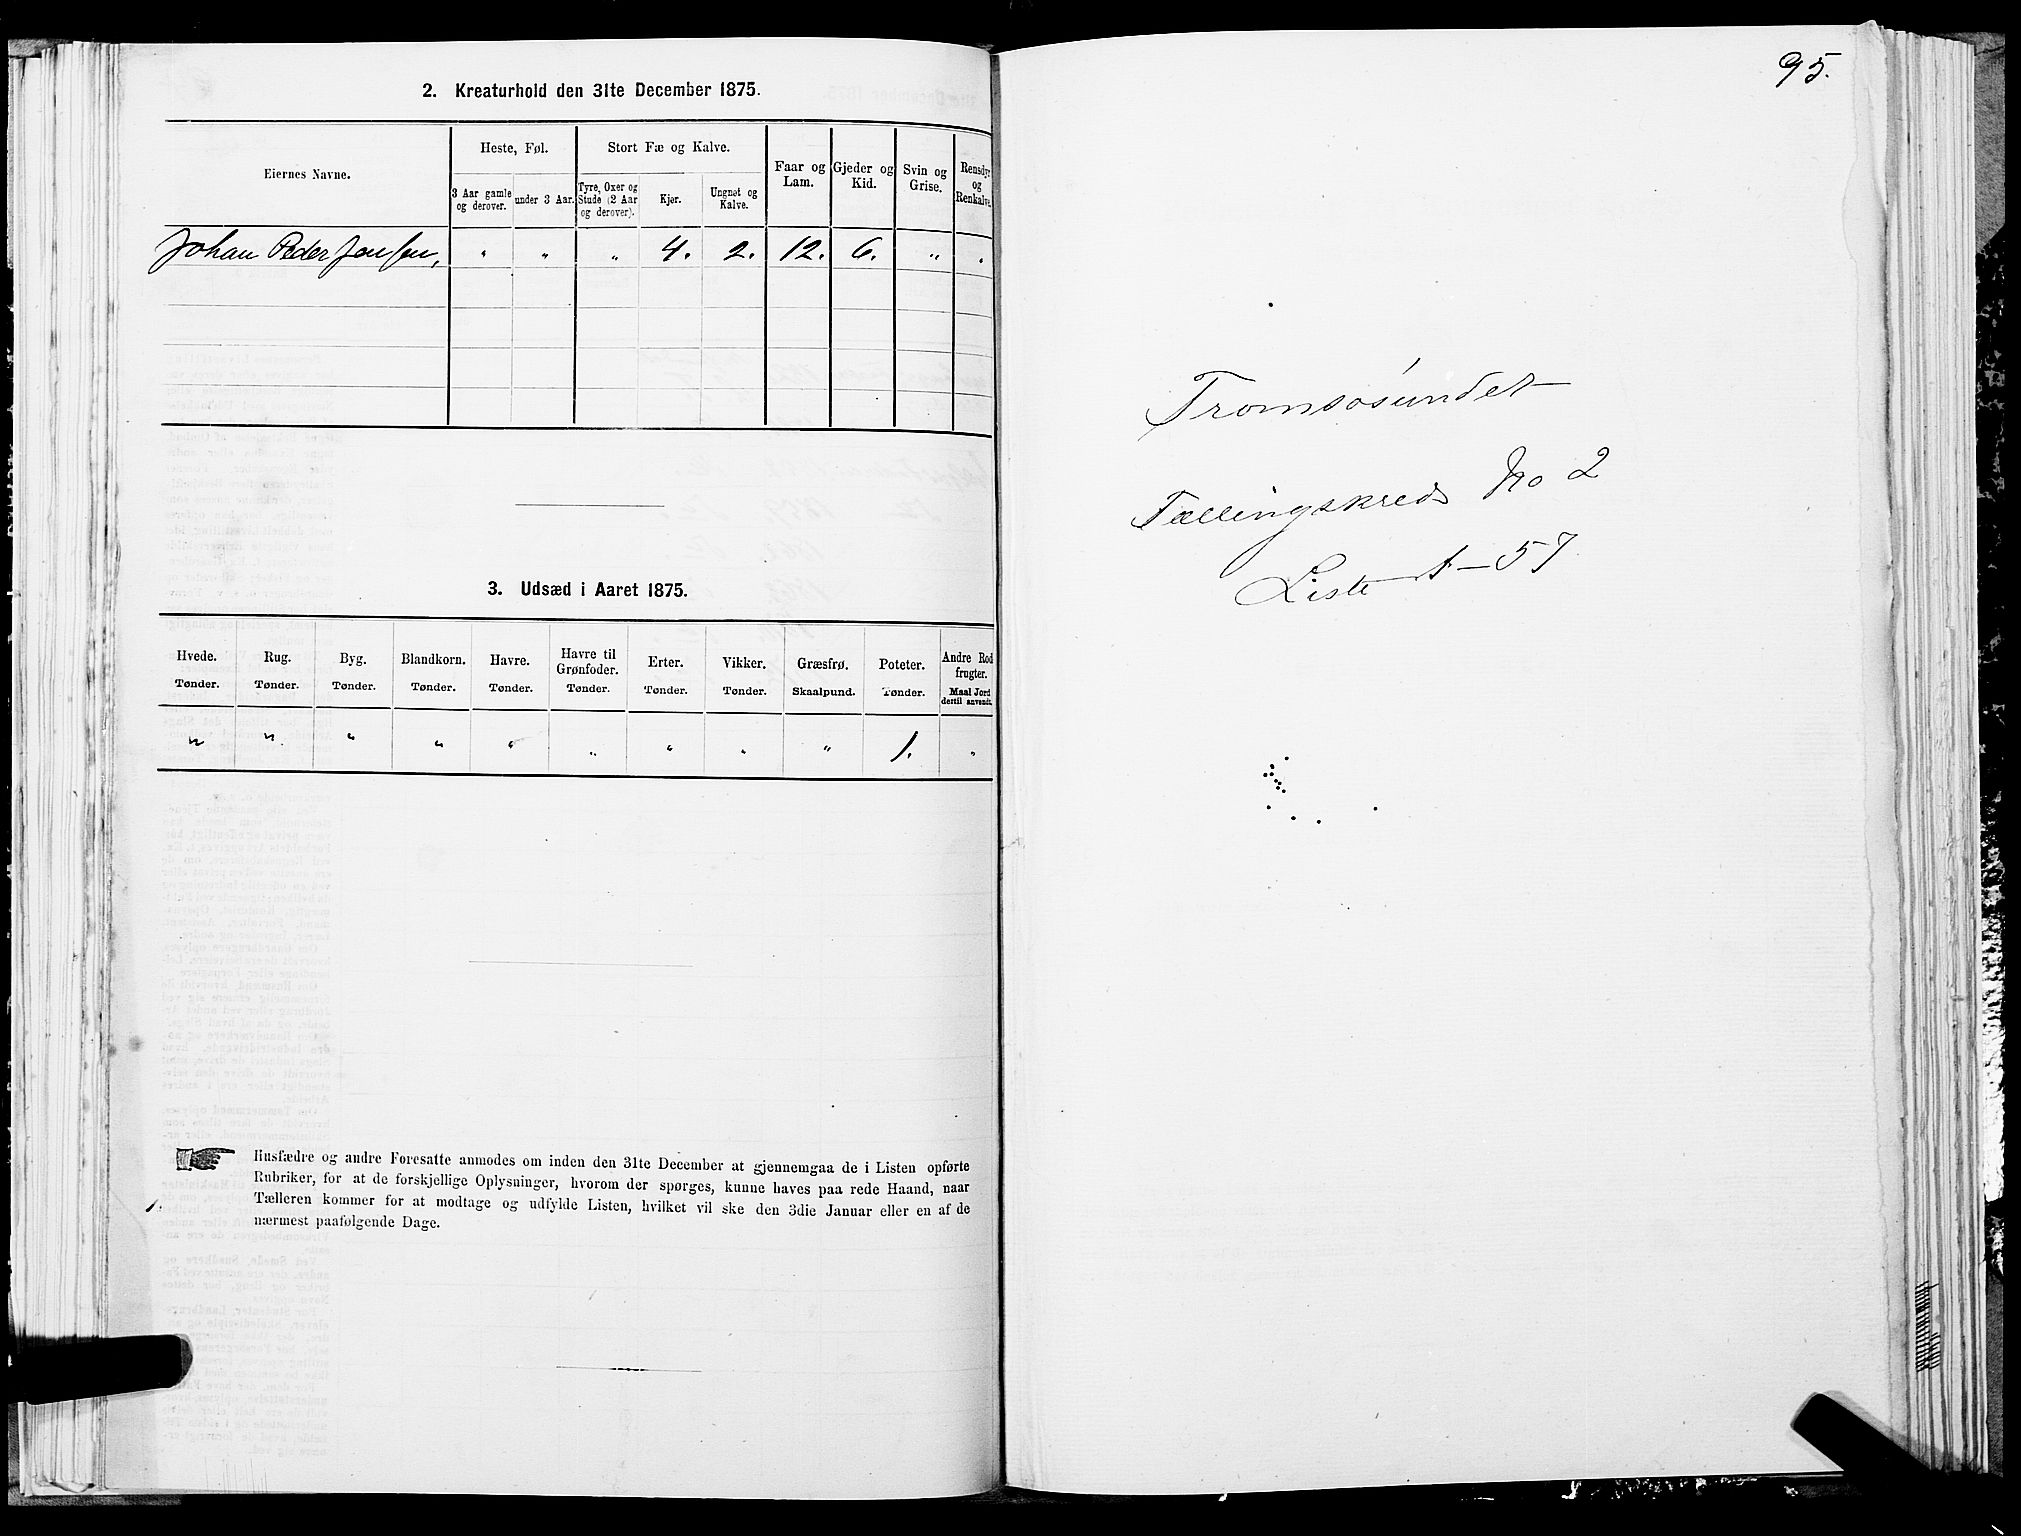 2. Kreaturhold den 31te December 1875.
Eiernes Navne.
Heste, Føl.
Stort Fæ og Kalve.
Faar og Lam.
Gjeder og Kid.
Svin og Grise.
Rensdyr og Renkalve.
3 Aar gamle og derover.
under 3 Aar.
Tyre, Oxer og Stude (2 Aar og derover).
Kjør.
Ungnøt og Kalve.
Johan Peder Jensen, " " " 4. 2. 12. 6. " "
3. Udsæd i Aaret 1875.
Hvede. Rug. Byg. Blandkorn. Havre. Havre til Grønfoder. Erter. Vikker. Græsfrø. Poteter. Andre Rodfrugter.
Tønder. Tønder. Tønder. Tønder. Tønder. Tønder. Tønder. Tønder. Skaalpund. Tønder. Maal Jord dertil anvendt.
" " " " " " " " " 1. "
Husfædre og andre Foresatte anmodes om inden den 31te December at gjennemgaa de i Listen opførte
Rubriker, for at de forskjellige Oplysninger, hvorom der spørges, kunne haves paa rede Haand, naar
Tælleren kommer for at modtage og udfylde Listen, hvilket vil ske den 3die Januar eller en af de
nærmest paafølgende Dage.
95.
Tromsøsundet
Tællingskreds No 2
Liste 1-57